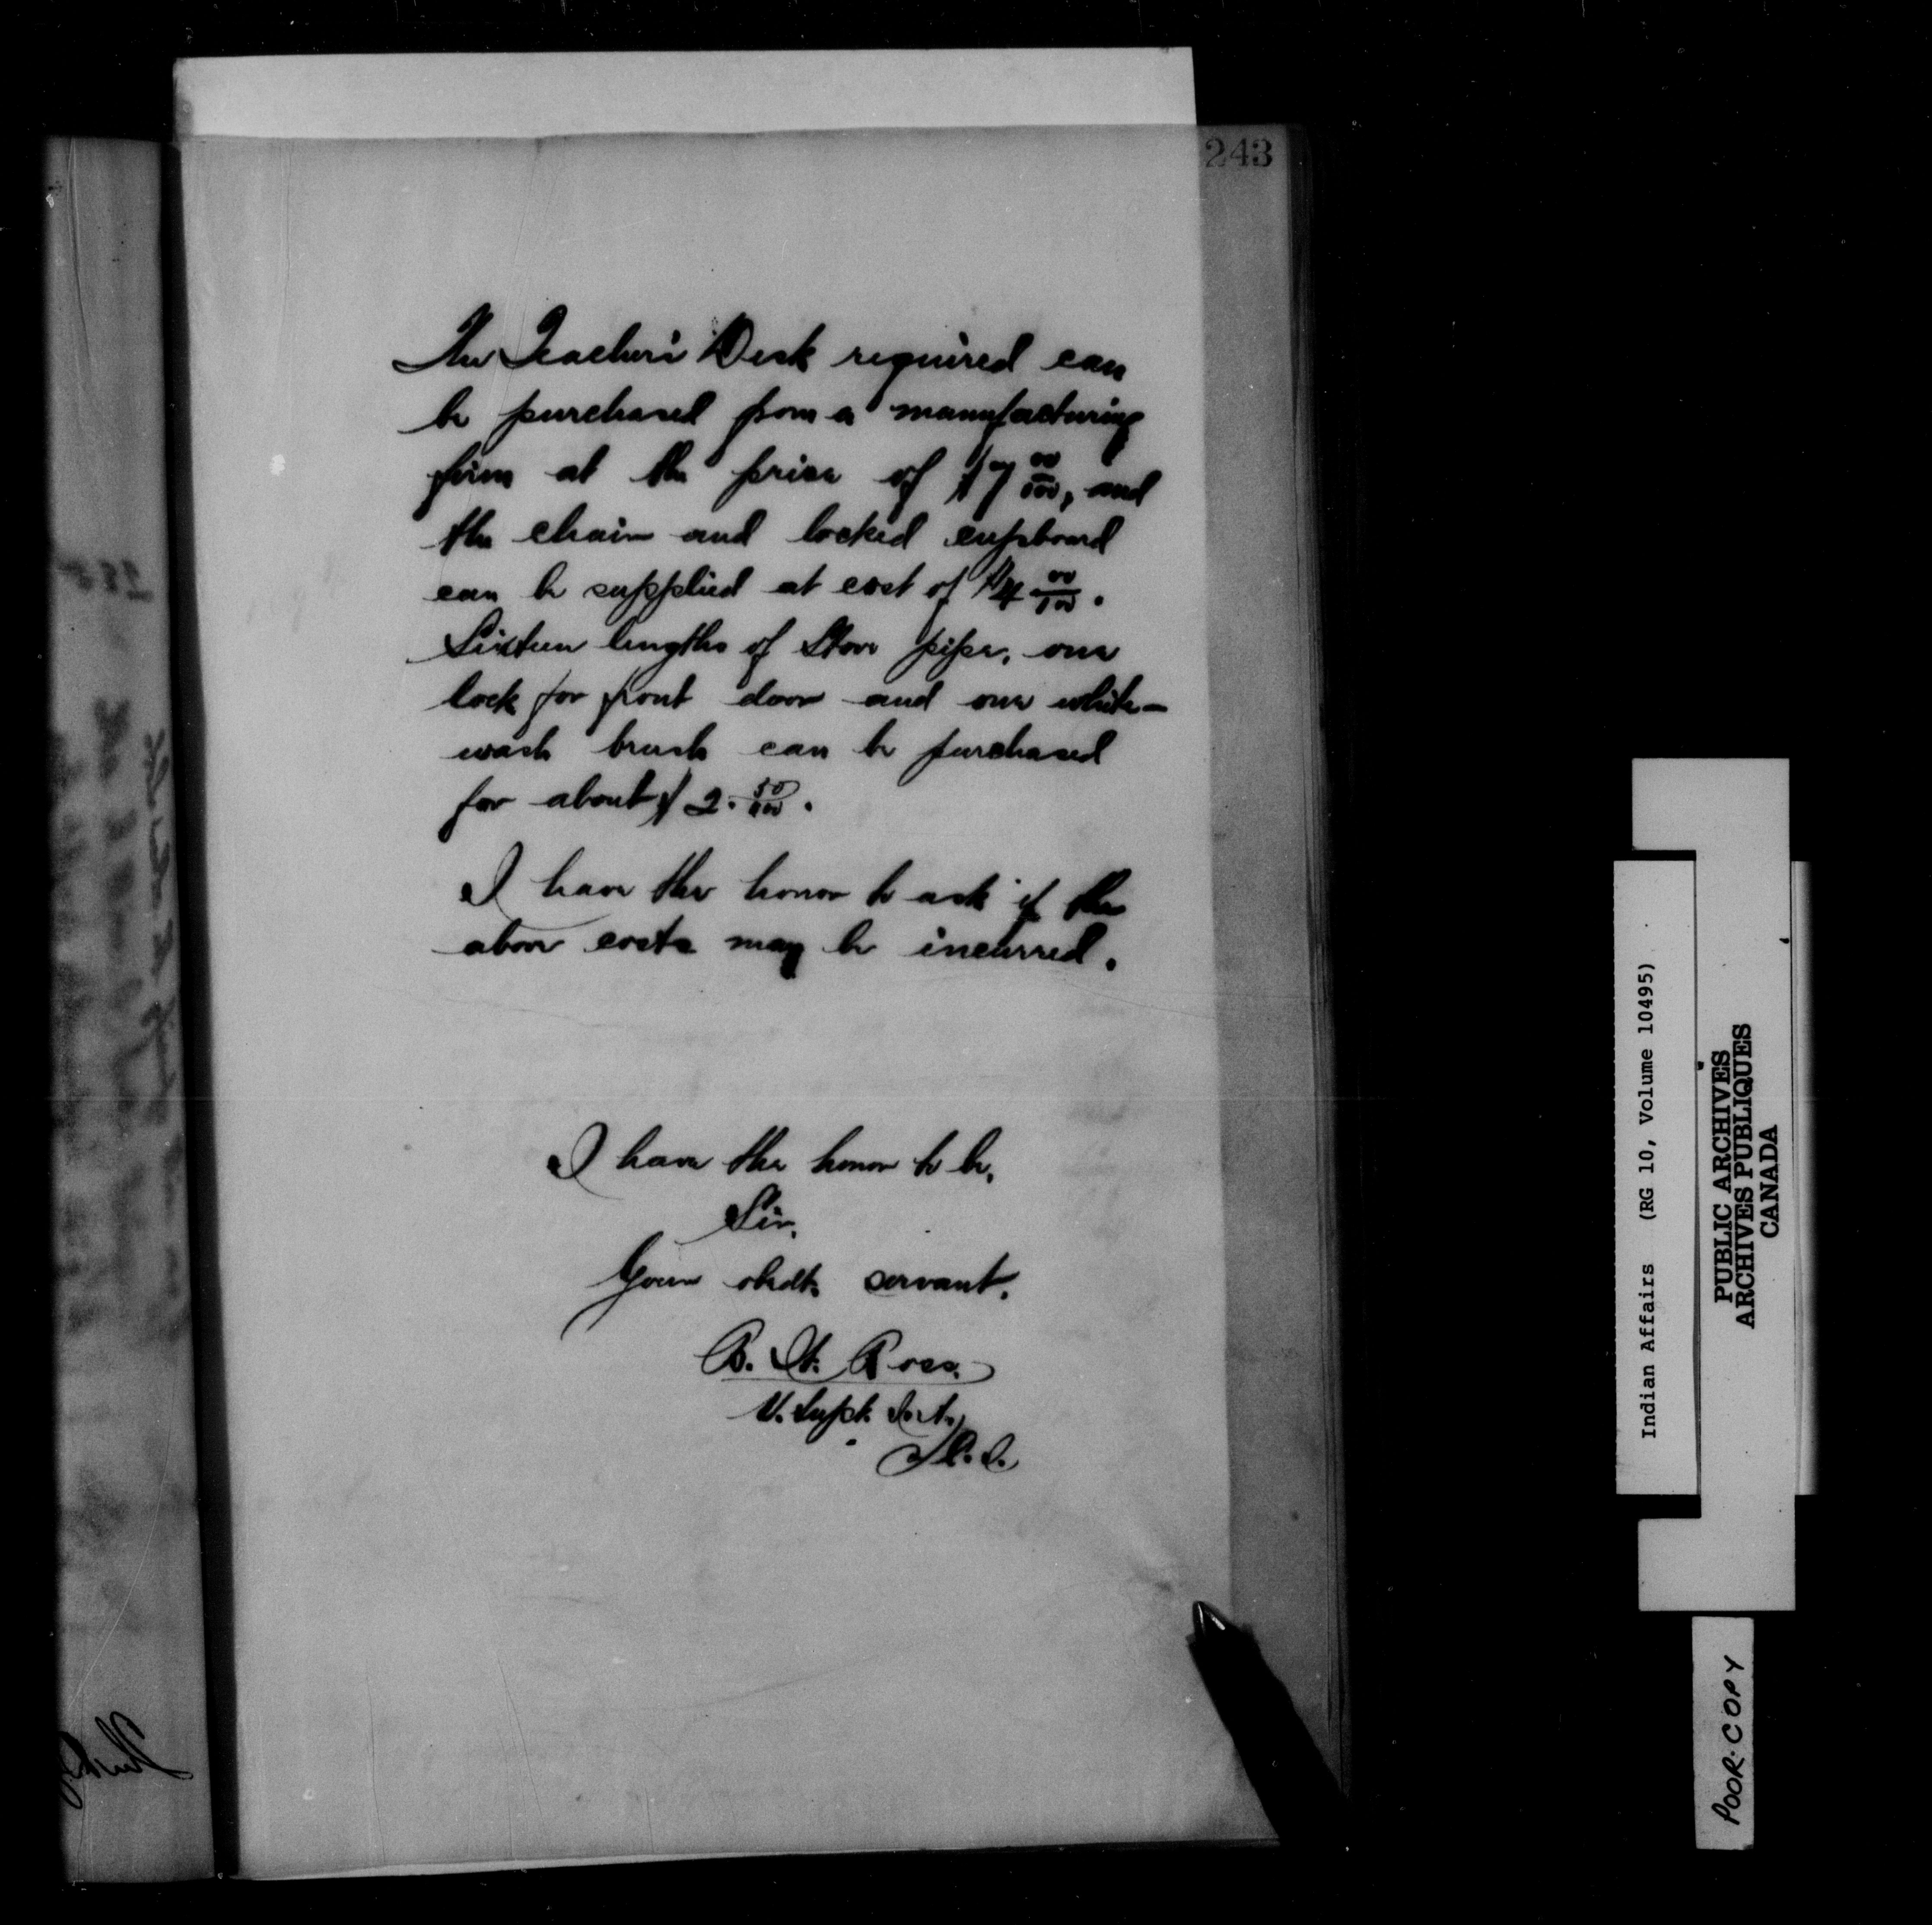 243
The Teacher's Desk required can
be purchased from a manufacturing
firm at the price of $7 00/100, and
the chair and locked cupboard
can be supplied at cost of $4 00/100.
Sixteen lengths of Stove pipe, one
lock for front door and one white-
wash brush can be purchased
for about $2. 50/100.
I have the honor to ask if the
above costs may be incurred.
I have the honor to be,
Sir,
Your obedt. servant,
B. W. Ross.
V. Supt.
Indian Affairs (RG 10, Volume 10495)
PUBLIC ARCHIVES
ARCHIVES PUBLIQUES
CANADA
POOR COPY